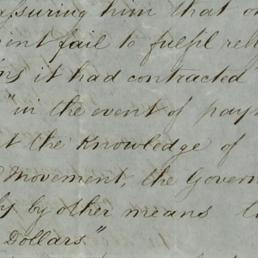 assuring him that o
ent fail to fulfil re
ns it had contracted
"in the event of pay
t the Knowledge of
Movement, the Govern
by other means
Dollars."